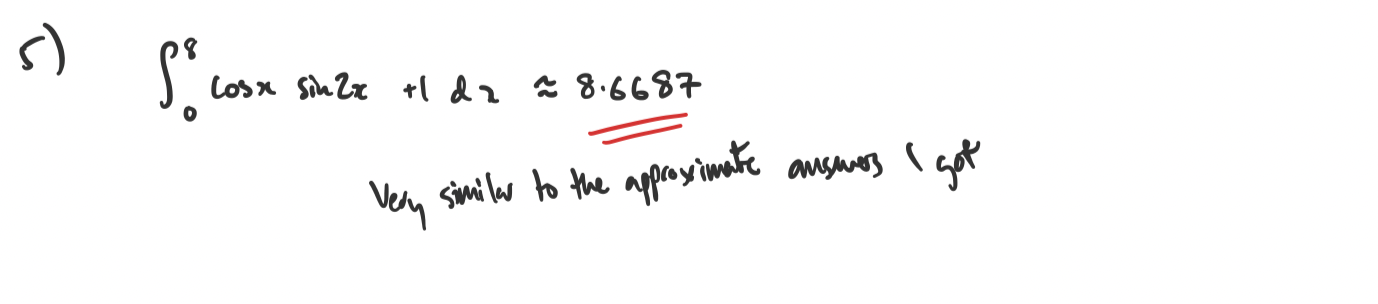 5) ∫₀⁸ cosx sin2x +1 dx ≈ 8.6687
Very similar to the approximate answers I got